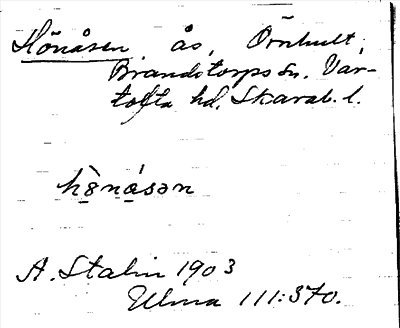 Hönåsen, ås, Örnhult,
Brandstorps sn. Var-
tofta hd, Skarab. l.
hö̀nåsən
A. Stalin 1903
Ulma 111:370.